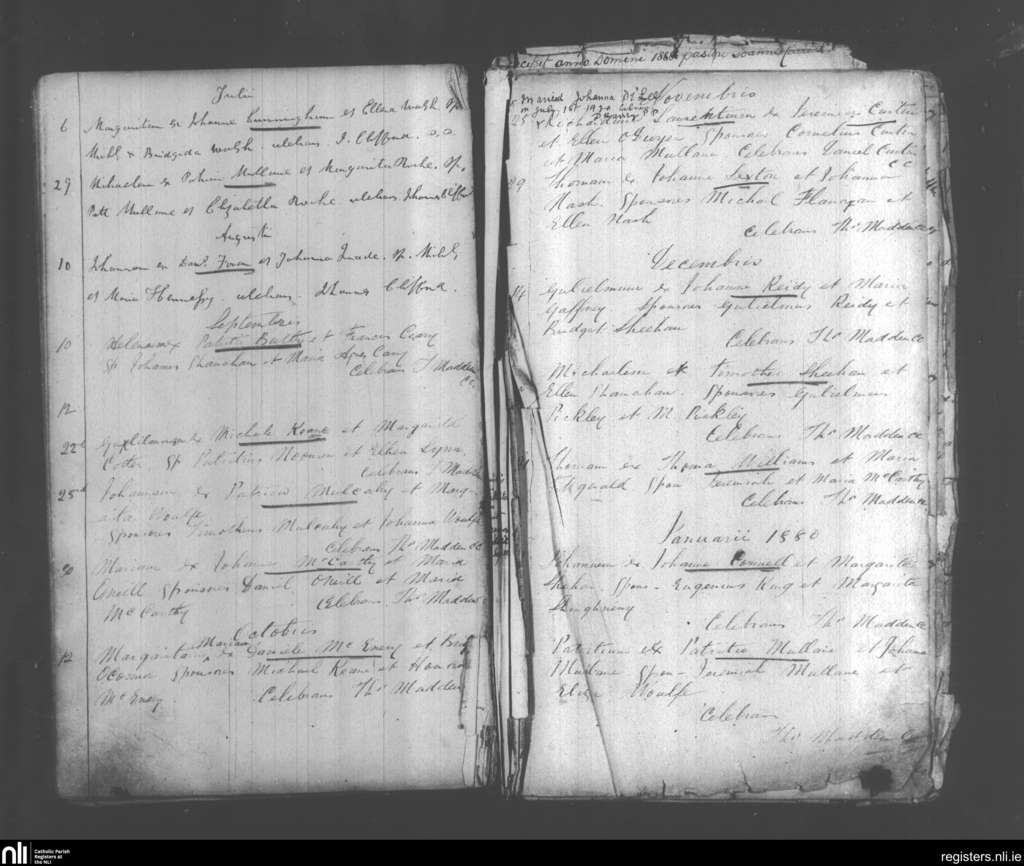 Julii
6 Margaritam ex Johanne Cunningham et Ellena Walsh Sp
Michl & Bridgida Walsh. celebrans J. Clifford. c.c.
29 Michaelem ex Patricio Mullane et Margarita Roche. Sp.
Patt Mullane et Elizabetha Roche celebrans Johannes Cliffor
Augusti
10 Johannam ex Danl. et Johanna Quade. Sp. Michl
et Maria Hennessy. celebrans. Johannes Cliffor
Septembris
10 Helenam ex et Frances Crary
Sp Johannes Shanahan et Maria Agnes
Celebrans T Madden
cc
12
22d ex Michele Keane et Margarita
Cotter Sp Patritius Noonan et Ellen Lyons
Celebrans T Madden
25d Johannam ex Patricio Mulcahy et Marg-
arita Woulfe
Sponsores Timotheus Mulcahy et Johanna Woulfe
Celebrans Ths Madden CC
30 Mariam ex Johannes McCarthy et Maria
Oneill Sponsores Daniel ONeill et Maria
McCarthy Celebrans Ths Madden
Octobris
12 Margarita Mariam ex Daniele McEnery et Brid
OConnor Sponsores Michael Keane et Honora
McEnery Celebrans Ths Madden
anno Domini
Married Johanna
on July 1st
Novembris
25 Richardum Laurentium ex Jeremia Curtin
et Ellen ODwyer Sponsores Cornelius Curtin
et Maria Mullane Celebrans Daniel Curtin
CC
29 Thomam ex Johanne Sexton et Johanna
Nash Sponsores Michael Flannigan et
Ellen Nash
Celebrans Ths Madden cc
Decembris
14 Gulielmum ex Johanne Reidy et Maria
Gaffney Sponsores Gulielmus Reidy et
Bridget Sheehan
Celebrans Ths Madden CC
Michaelem ex Timotheo Sheehan et
Ellen Shanahan. Sponsores Gulielmus
Pickley et M. Pickley
Celebrans Ths Madden CC
Thomam ex Thoma Williams et Maria
Fitzgerald Spon Jeremiah et Maria McCarthy
Celebrans Ths Madden cc
Januarii 1880
Johannem ex Johanne Connell et Margarita
Spons - Eugenius King et Margarita
Celebrans Ths Madden CC
Patritium ex Patritio Mullane et Johana
Mullane Spon - Jeremiah Mullane et
Eliza Woulfe
Celebrans
Ths Madden CC
nli Catholic Parish
Registers at
the NLI
registers.nli.ie